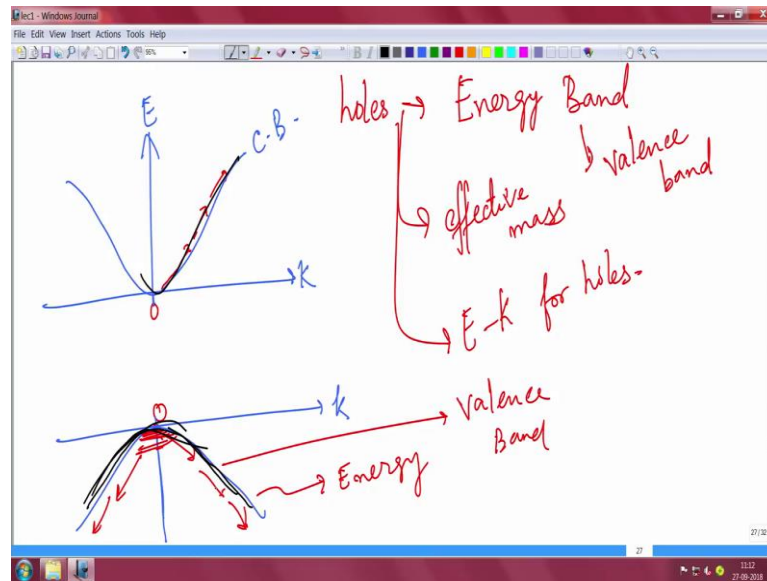 lec1 - Windows Journal
File Edit View Insert Actions Tools Help
95%
E
C.B.
k
0
holes → Energy Band
↳ valence
band
effective
mass
E-k for holes.
0
k
Valence
Band
Energy
27/32
27
11:12
27-09-2018